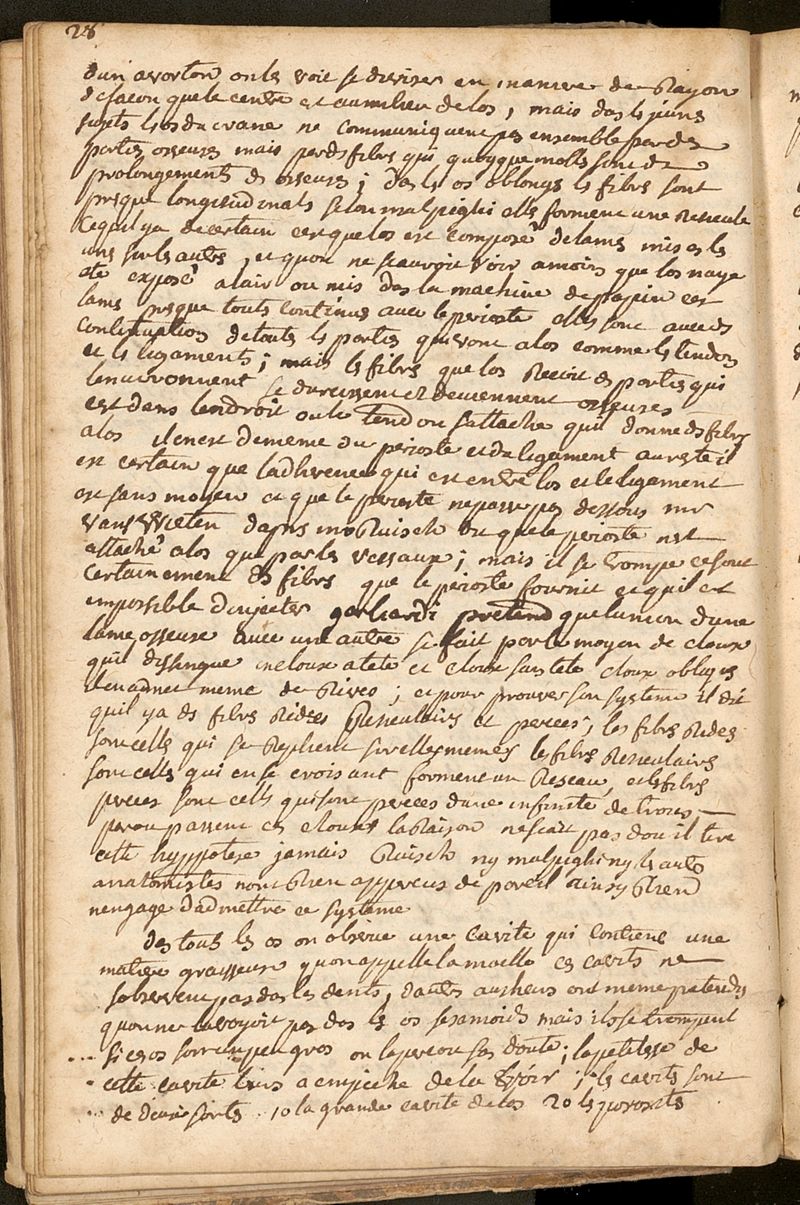 28
dun avorton on les voit se diviser en maniere de Rayon
de facon que le centre est au milieu de los, mais dans les jeunes
sujets les os du crane ne communiquent pas ensemble par des
parties osseuses mais par des fibres qui quoyque molles sont des
prolongements des osseuses; dans les os oblongs les fibres sont
presque longitudinales selon malpighi elles forment une Reticule
ce quil ya de certain cest que los est composé de lames mises les
unes sur les autres, et quon ne scauroit voir a moins que los naye
ete exposé a lair ou mis dans la machine de papin ces
lames presque toutes continues avec le perioste elles sont avec des
continuation de toutes les parties qui vont a los comme les tendons
et les ligaments; mais les fibres que los Recoit des parties qui
lenvironnent se durcissent et deviennent osseuses
est dans lendroit ou le tendon sattache quil donne des fibres
a los il en est de meme du perioste et du ligament au reste il
est certain que ladherence qui est entre los et le ligament
est sans moyen et que le perioste ne passe pas dessous mr
vans Wieten dapres mr Ruisch dit que le perioste nest
attaché a los que par les vessaux; mais il se trompe ce sont
certainement des fibres que le perioste fournit et quil est
impossible dinjecter gerhardi pretend que lunion dune
lame osseuse avec une autre se fait par le moyen de cloux
quil distingue en cloux a tete et cloux sans tete cloux obliques
il en admet meme de Rivés; et pour prouver son systeme il dit
quil ya des fibres Ridées Reticulaires et percées, les fibres Ridées
sont celles qui se Replient sur elles memes les fibres Reticulaires
sont celles qui en se croisant forment un Reseau, et les fibres
percees sont celles qui sont percees dune infinite de trous,
par ou passent ces cloux la Raison ne scait pas dou il tire
cette hyppotese jamais Ruisch ny malpighi ny les autres
anatomistes nont Rien appercus de pareil ainsy Rien
nengage dadmettre ce systeme
dans tous les os on observe une cavite qui contient une
matiere graisseuse quon appelle la moelle ces cavites ne
sobservent pas dans les dents, dautres autheurs ont meme pretendus
quon ne la voyoit pas dans les os sesamoides mais ils se trompent
si ces os sont un peu gros on lapercoit sans doute; la petitesse de
cette cavite leurs a empeche de la voir; les cavites sont
de deux sortes 1o la grande cavite de los 2o les porosites